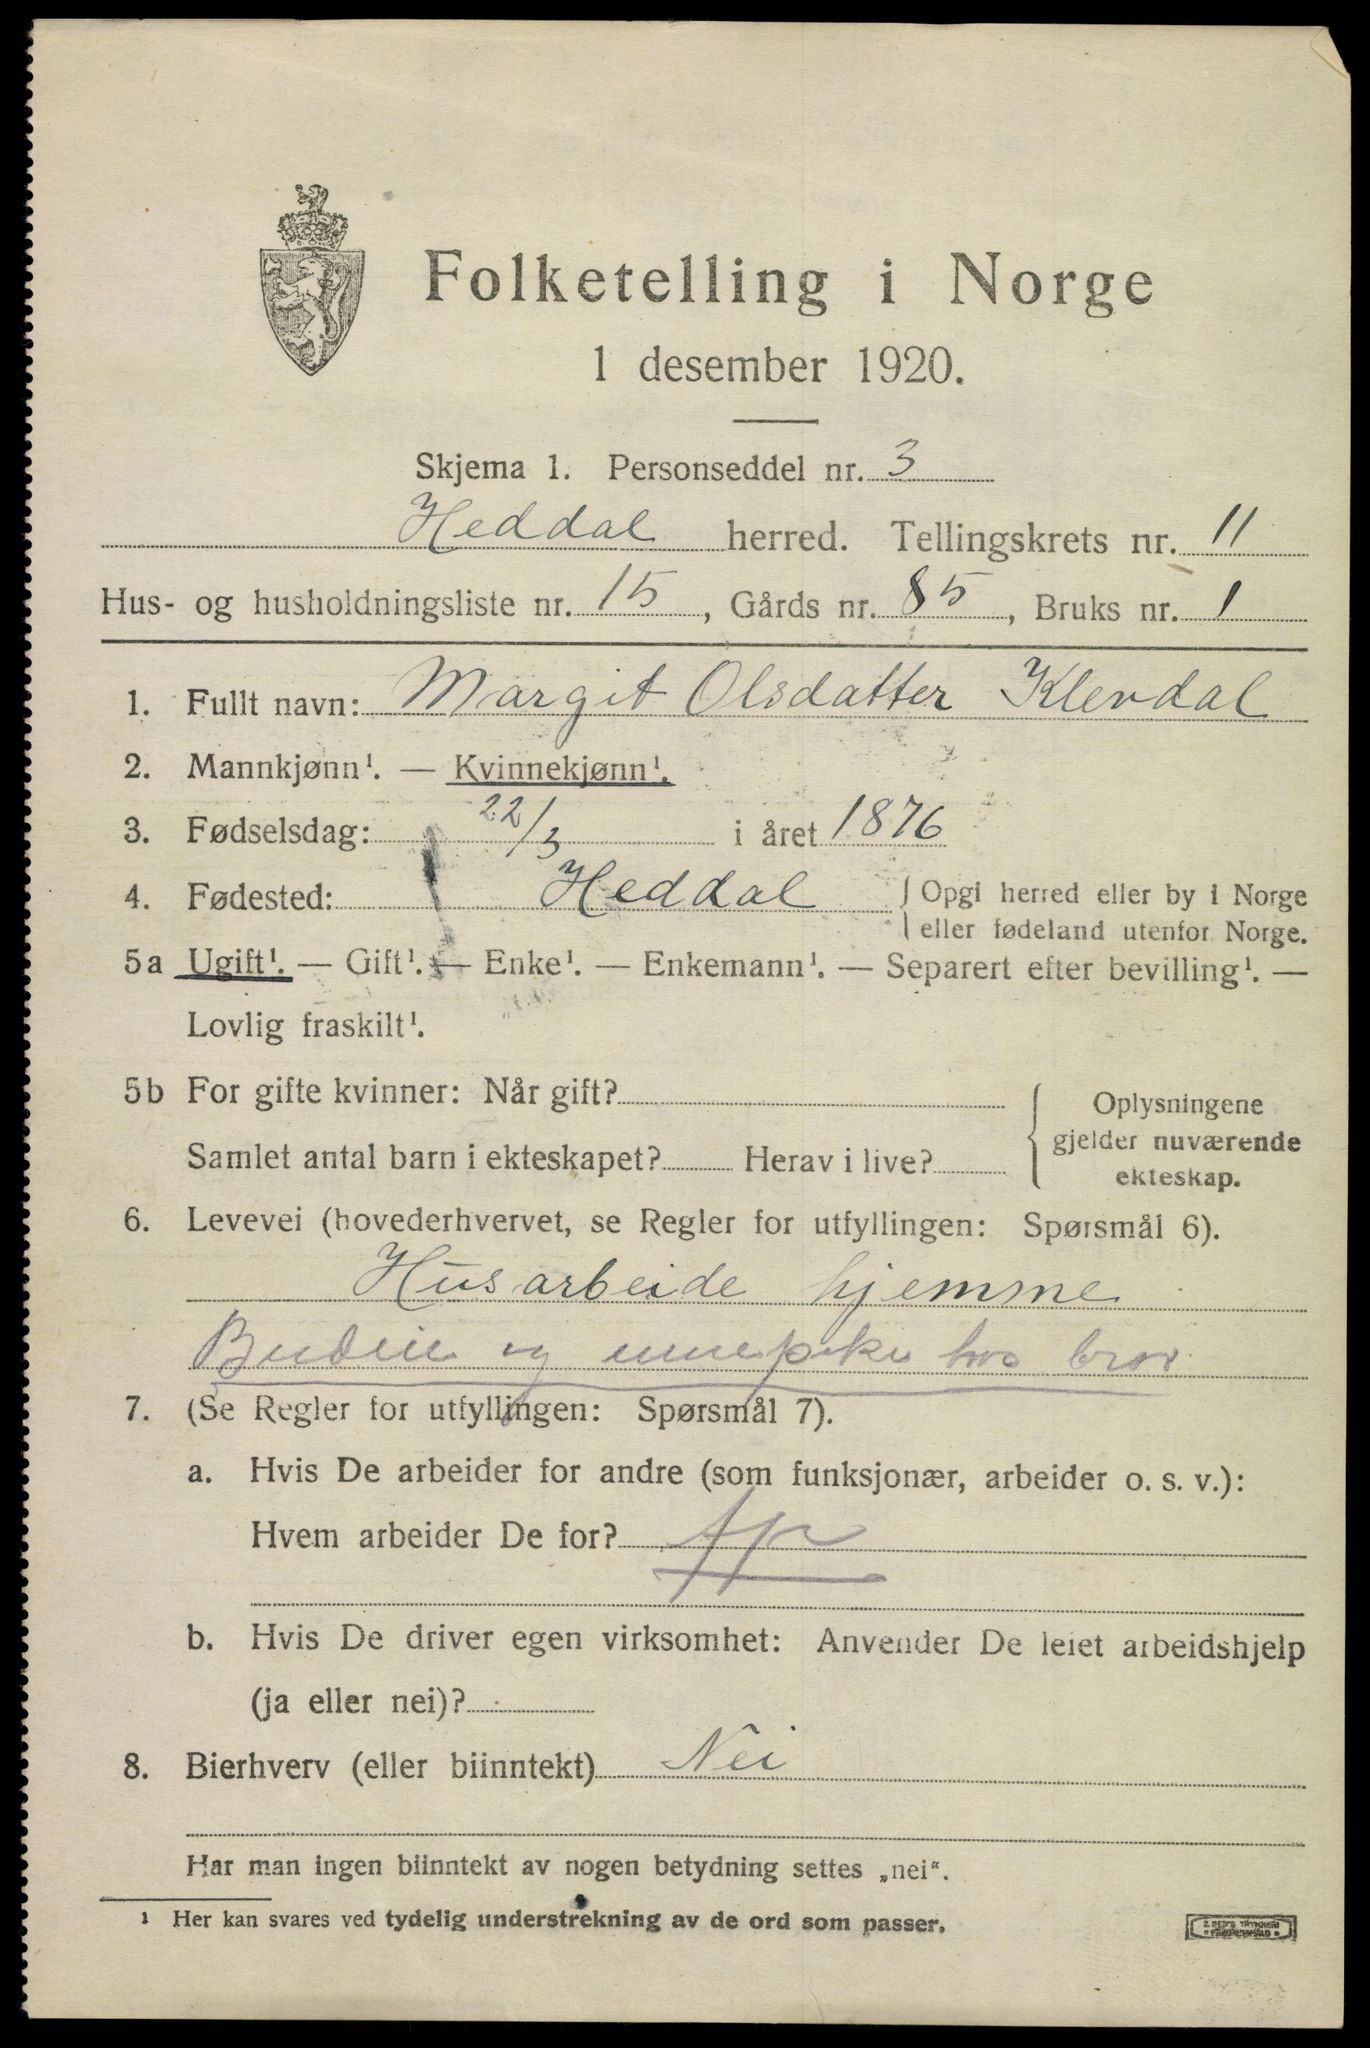 Folketelling i Norge
1 desember 1920.
Skjema 1. Personseddel nr. 3
Heddal herred. Tellingskrets nr. 11
Hus- og husholdningsliste nr. 15, Gårds nr. 85, Bruks nr. 1
1. Fullt navn: Margit Olsdatter Klevdal
2. Mannkjønn¹. — Kvinnekjønn¹.
3. Fødselsdag: 22/3 i året 1876
4. Fødested: Heddal { Opgi herred eller by i Norge
eller fødeland utenfor Norge.
5a Ugift¹. — Gift¹. — Enke¹. — Enkemann¹. — Separert efter bevilling¹. —
Lovlig fraskilt¹.
5b For gifte kvinner: Når gift?
Samlet antal barn i ekteskapet? Herav i live?
Oplysningene
gjelder nuværende
ekteskap.
6. Levevei (hovederhvervet, se Regler for utfyllingen: Spørsmål 6).
Husarbeide hjemme
Budeie og innepike hos bror
7. (Se Regler for utfyllingen: Spørsmål 7).
a. Hvis De arbeider for andre (som funksjonær, arbeider o. s. v.):
Hvem arbeider De for?
b. Hvis De driver egen virksomhet: Anvender De leiet arbeidshjelp
(ja eller nei)?
8. Bierhverv (eller biinntekt) Nei
Har man ingen biinntekt av nogen betydning settes „nei“.
¹ Her kan svares ved tydelig understrekning av de ord som passer.